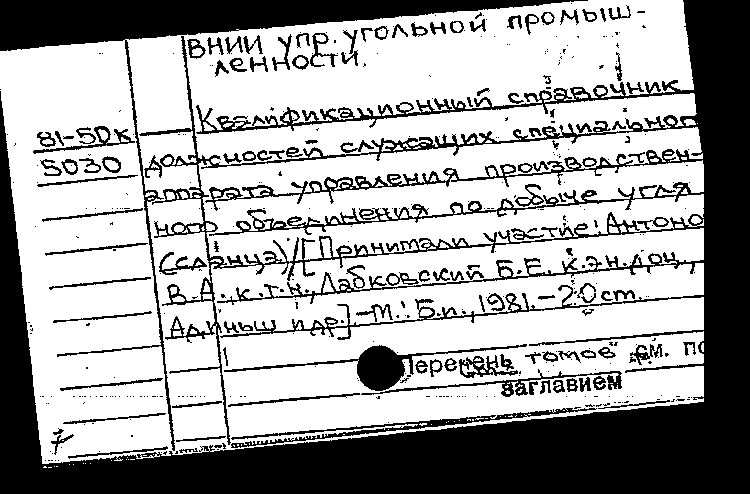 ВНИИ упр. угольной промыш-
ленности.
Квалификационный справочник
81-5Dк
5030 должностей служащих специальног
аппарата управления производствен-
ного объединения по добыче угля
(сланца)/[Принимали участие: Антоно
В.А., к.т.н., Лабковский Б.Е. к.эн.доц.,
и др.]-М.: Б.и., 1981.-20 см.
Перечень томов см. по
заглавием
7